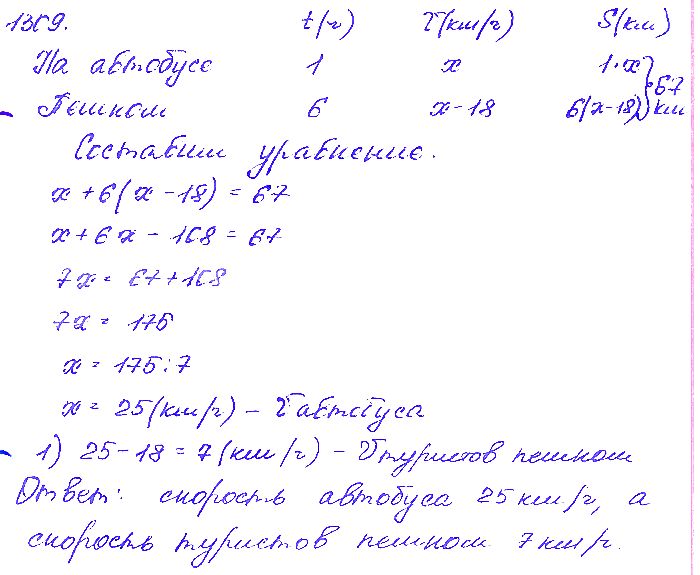 1309. t(ч) V(км/ч) S(км)
На автобусе 1 x 1·x
Пешком 6 x-18 6(x-18) } 67 км
Составим уравнение.
x+6(x-18) = 67
x+6x-108 = 67
7x = 67+108
7x = 175
x = 175:7
x = 25(км/ч) - V автобуса
1) 25-18 = 7 (км/ч) - V туристов пешком
Ответ: скорость автобуса 25 км/ч, а
скорость туристов пешком 7 км/ч.